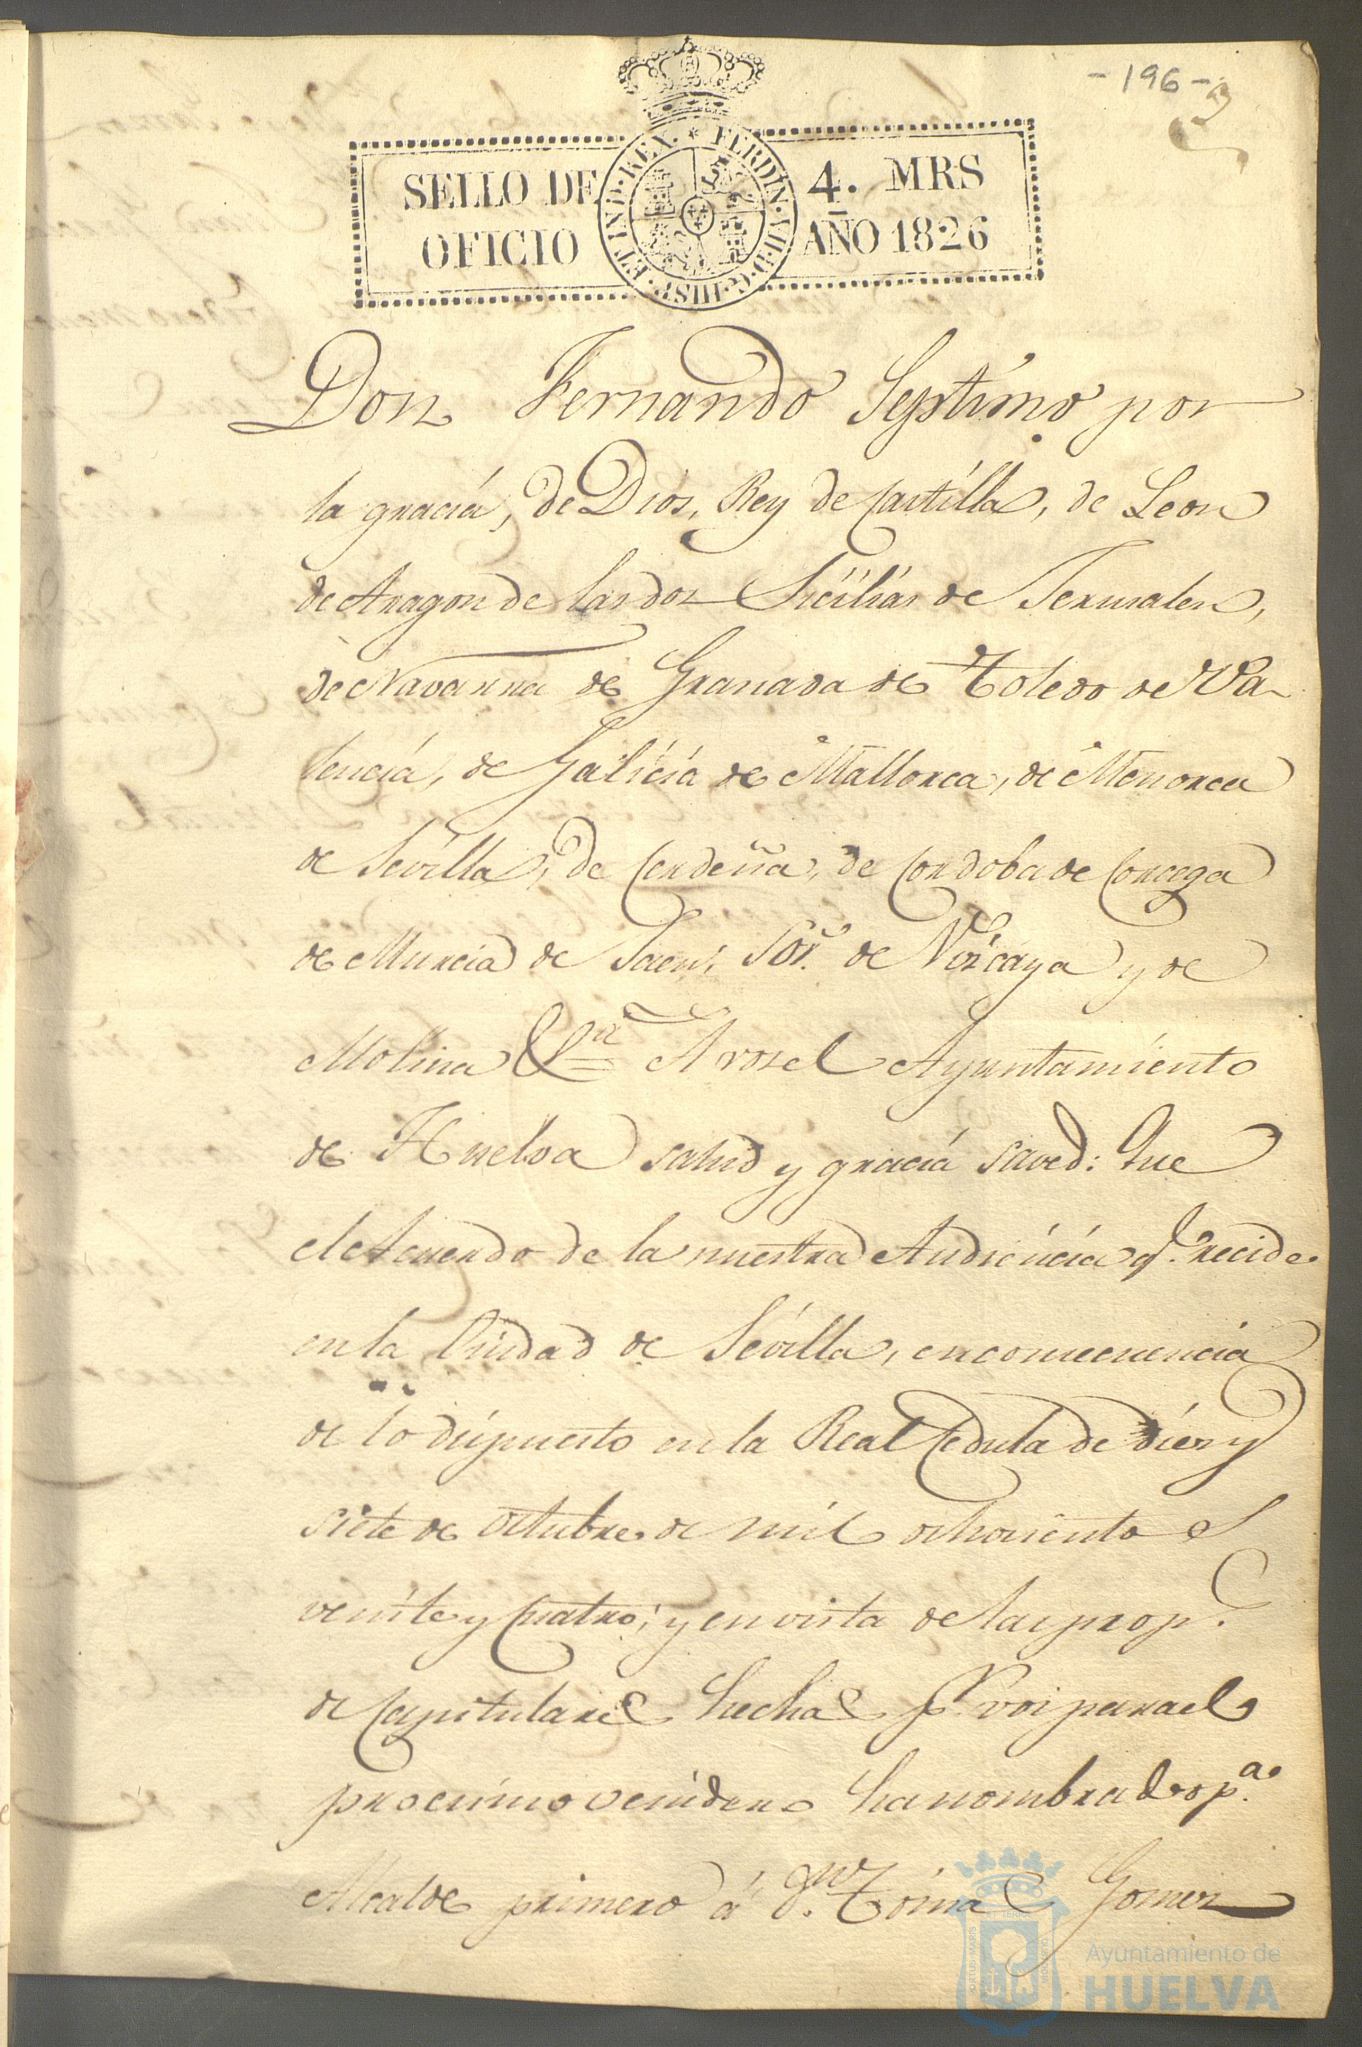 - 196 -
SELLO DE
OFICIO
FERDIN. VII. D. G. HISP. ET IND. REX.
4. MRS
AÑO 1826
Don Fernando Septimo por
la gracia, de Dios, Rey de Castilla, de Leon
de Aragon de las dos Sicilias de Jerusalen,
de Navarra de Granada de Toledo de Va-
lencia, de Galicia de Mallorca, de Menorca
de Sevilla, de Cerdeña, de Cordoba de Corcega
de Murcia de Jaen, Sor. de Vizcaya y de
Molina &ra A vos el Ayuntamiento
de Huelva salud y gracia saved: Que
el Acuerdo de la nuestra Audiencia q.e recide
en la Ciudad de Sevilla, en consecuencia
de lo dispuesto en la Real Cedula de diez y
siete de octubre de mil ochociento s
veinte y cuatro; y en vista de las prop.s
de Capitulares hechas p.r vos para el
procsimo venidero ha nombrado p.a
Alcalde primero á d.n Tomas Gomez
Ayuntamiento de
HUELVA